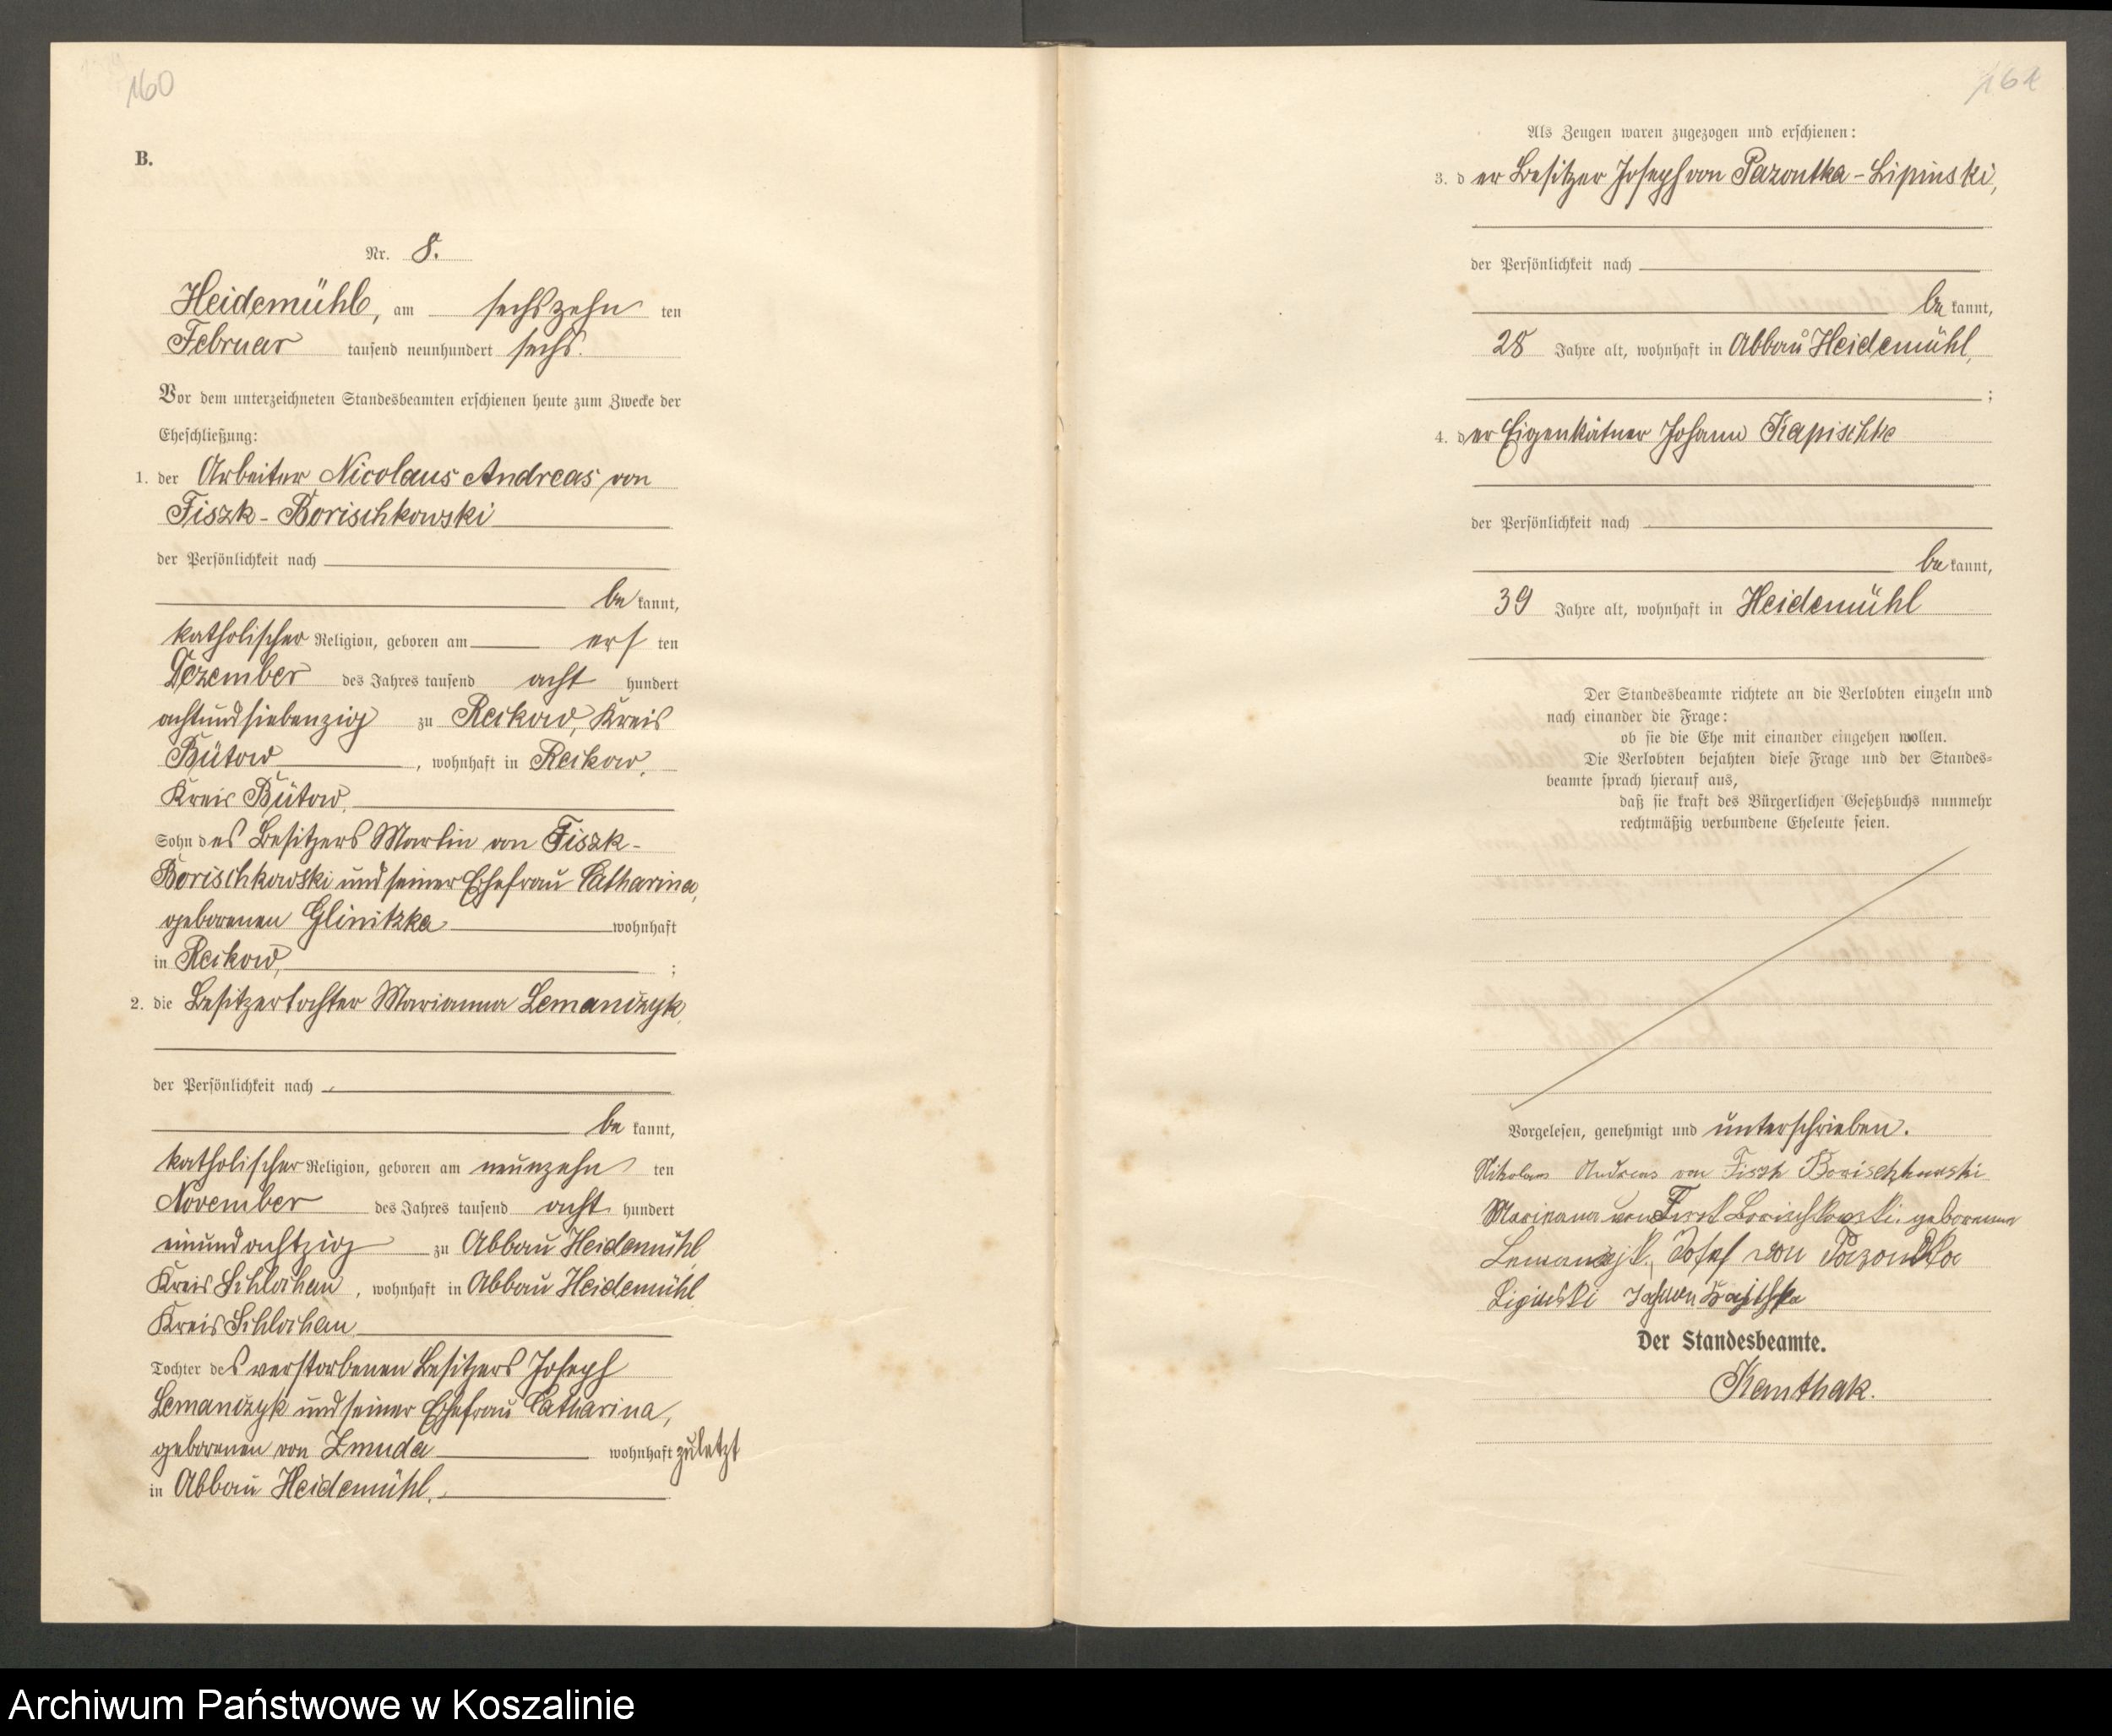 160
B.
Nr. 8.
Heidemühl, am sechszehn ten
Februar tausend neunhundert sechs.
Vor dem unterzeichneten Standesbeamten erschienen heute zum Zwecke der
Eheschließung:
1. der Arbeiter Nicolaus Andreas von
Fiszk-Borischkowski
der Persönlichkeit nach
be kannt,
katholischer Religion, geboren am ers ten
Dezember des Jahres tausend acht hundert
achtundsiebenzig zu Reckow, Kreis
Bütow, wohnhaft in Reckow,
Kreis Bütow,
Sohn des Besitzers Martin von Fiszk-
Borischkowski und seiner Ehefrau Catharina,
geborenen Glinitzka wohnhaft
in Reckow, ;
2. die Besitzertochter Marianna Lemanczyk,
der Persönlichkeit nach
be kannt,
katholischer Religion, geboren am neunzehn ten
November des Jahres tausend acht hundert
einundachtzig zu Abbau Heidemühl,
Kreis Schlochau, wohnhaft in Abbau Heidemühl
Kreis Schlochau
Tochter des verstorbenen Besitzers Joseph
Lemanczyk und seiner Ehefrau Catharina,
geborenen von Zmuda wohnhaft zuletzt
in Abbau Heidemühl.
161
Als Zeugen waren zugezogen und erschienen:
3. der Besitzer Joseph von Pazontka-Lipinski,
der Persönlichkeit nach
be kannt,
28 Jahre alt, wohnhaft in Abbau Heidemühl,
;
4. der Eigenkätner Johann Kapischke
der Persönlichkeit nach
be kannt,
39 Jahre alt, wohnhaft in Heidemühl
Der Standesbeamte richtete an die Verlobten einzeln und
nach einander die Frage:
ob sie die Ehe mit einander eingehen wollen.
Die Verlobten bejahten diese Frage und der Standes-
beamte sprach hierauf aus,
daß sie kraft des Bürgerlichen Gesetzbuchs nunmehr
rechtmäßig verbundene Eheleute seien.
Vorgelesen, genehmigt und unterschrieben.
Nikolaus Andreas von Fiszk Borischkowski
Marianna von Fiszk Borischkowski geborenen
Lemanczyk, Josef von Pazontka
Lipinski Johann
Der Standesbeamte.
Kanthak.
Archiwum Państwowe w Koszalinie